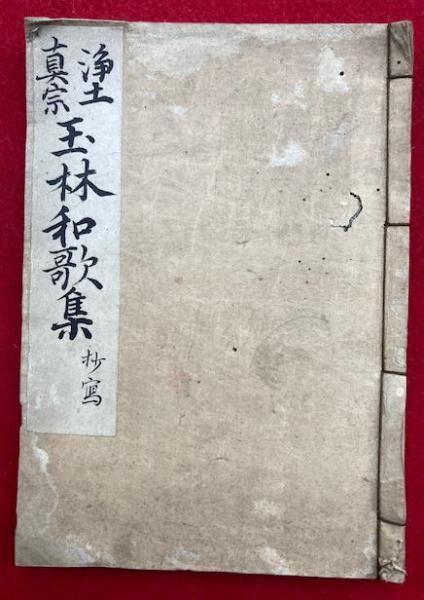 浄土
真宗
玉林和歌集
抄寫